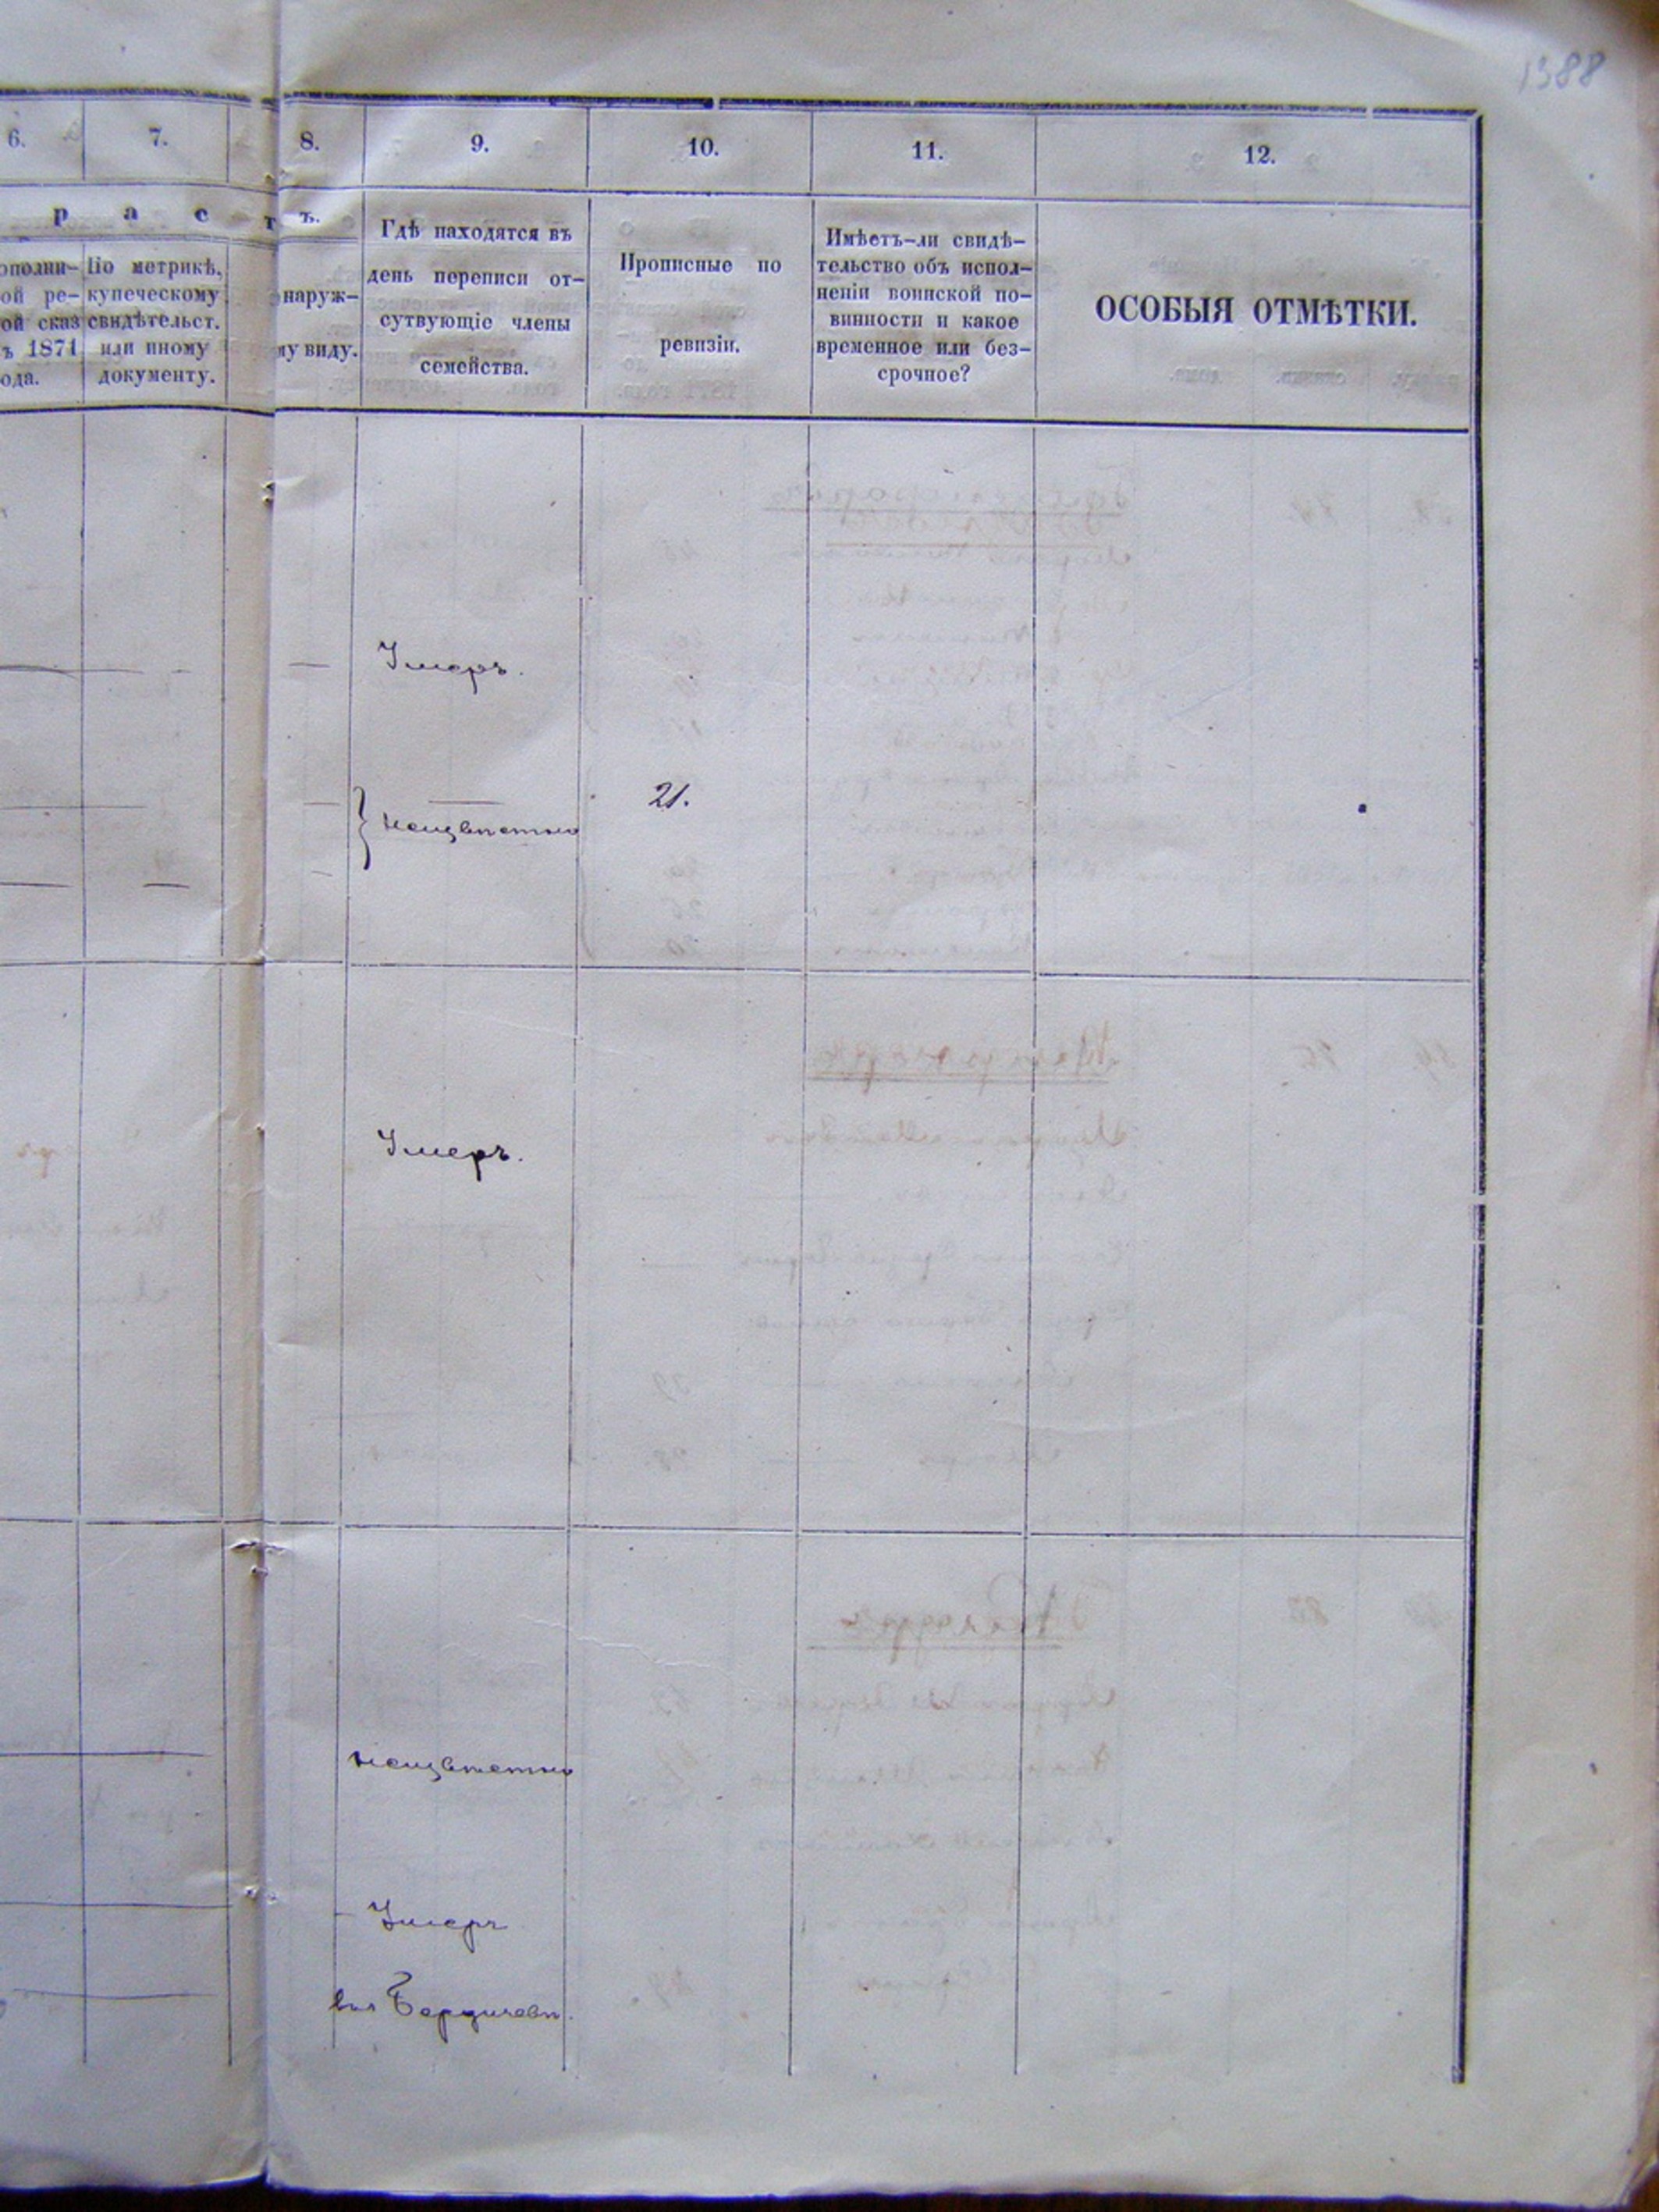 1388
6. 7. 8. 9. 10. 11. 12.
р а с т ъ.
ополни-
ой ре-
ой сказ
ъ 1871
ода.
По метрикѣ,
купеческому
свидѣтельст.
или иному
документу.
наруж-
му виду.
Гдѣ находятся въ
день переписи от-
сутвующіе члены
семейства.
Прописные по
ревизіи.
Имѣетъ-ли свидѣ-
тельство объ испол-
неніи воинской по-
винности и какое
временное или без-
срочное?
ОСОБЫЯ ОТМѢТКИ.
Умеръ.
21.
неизвѣстно
Умеръ.
неизвѣстно
Умеръ
въ Бердичевѣ.